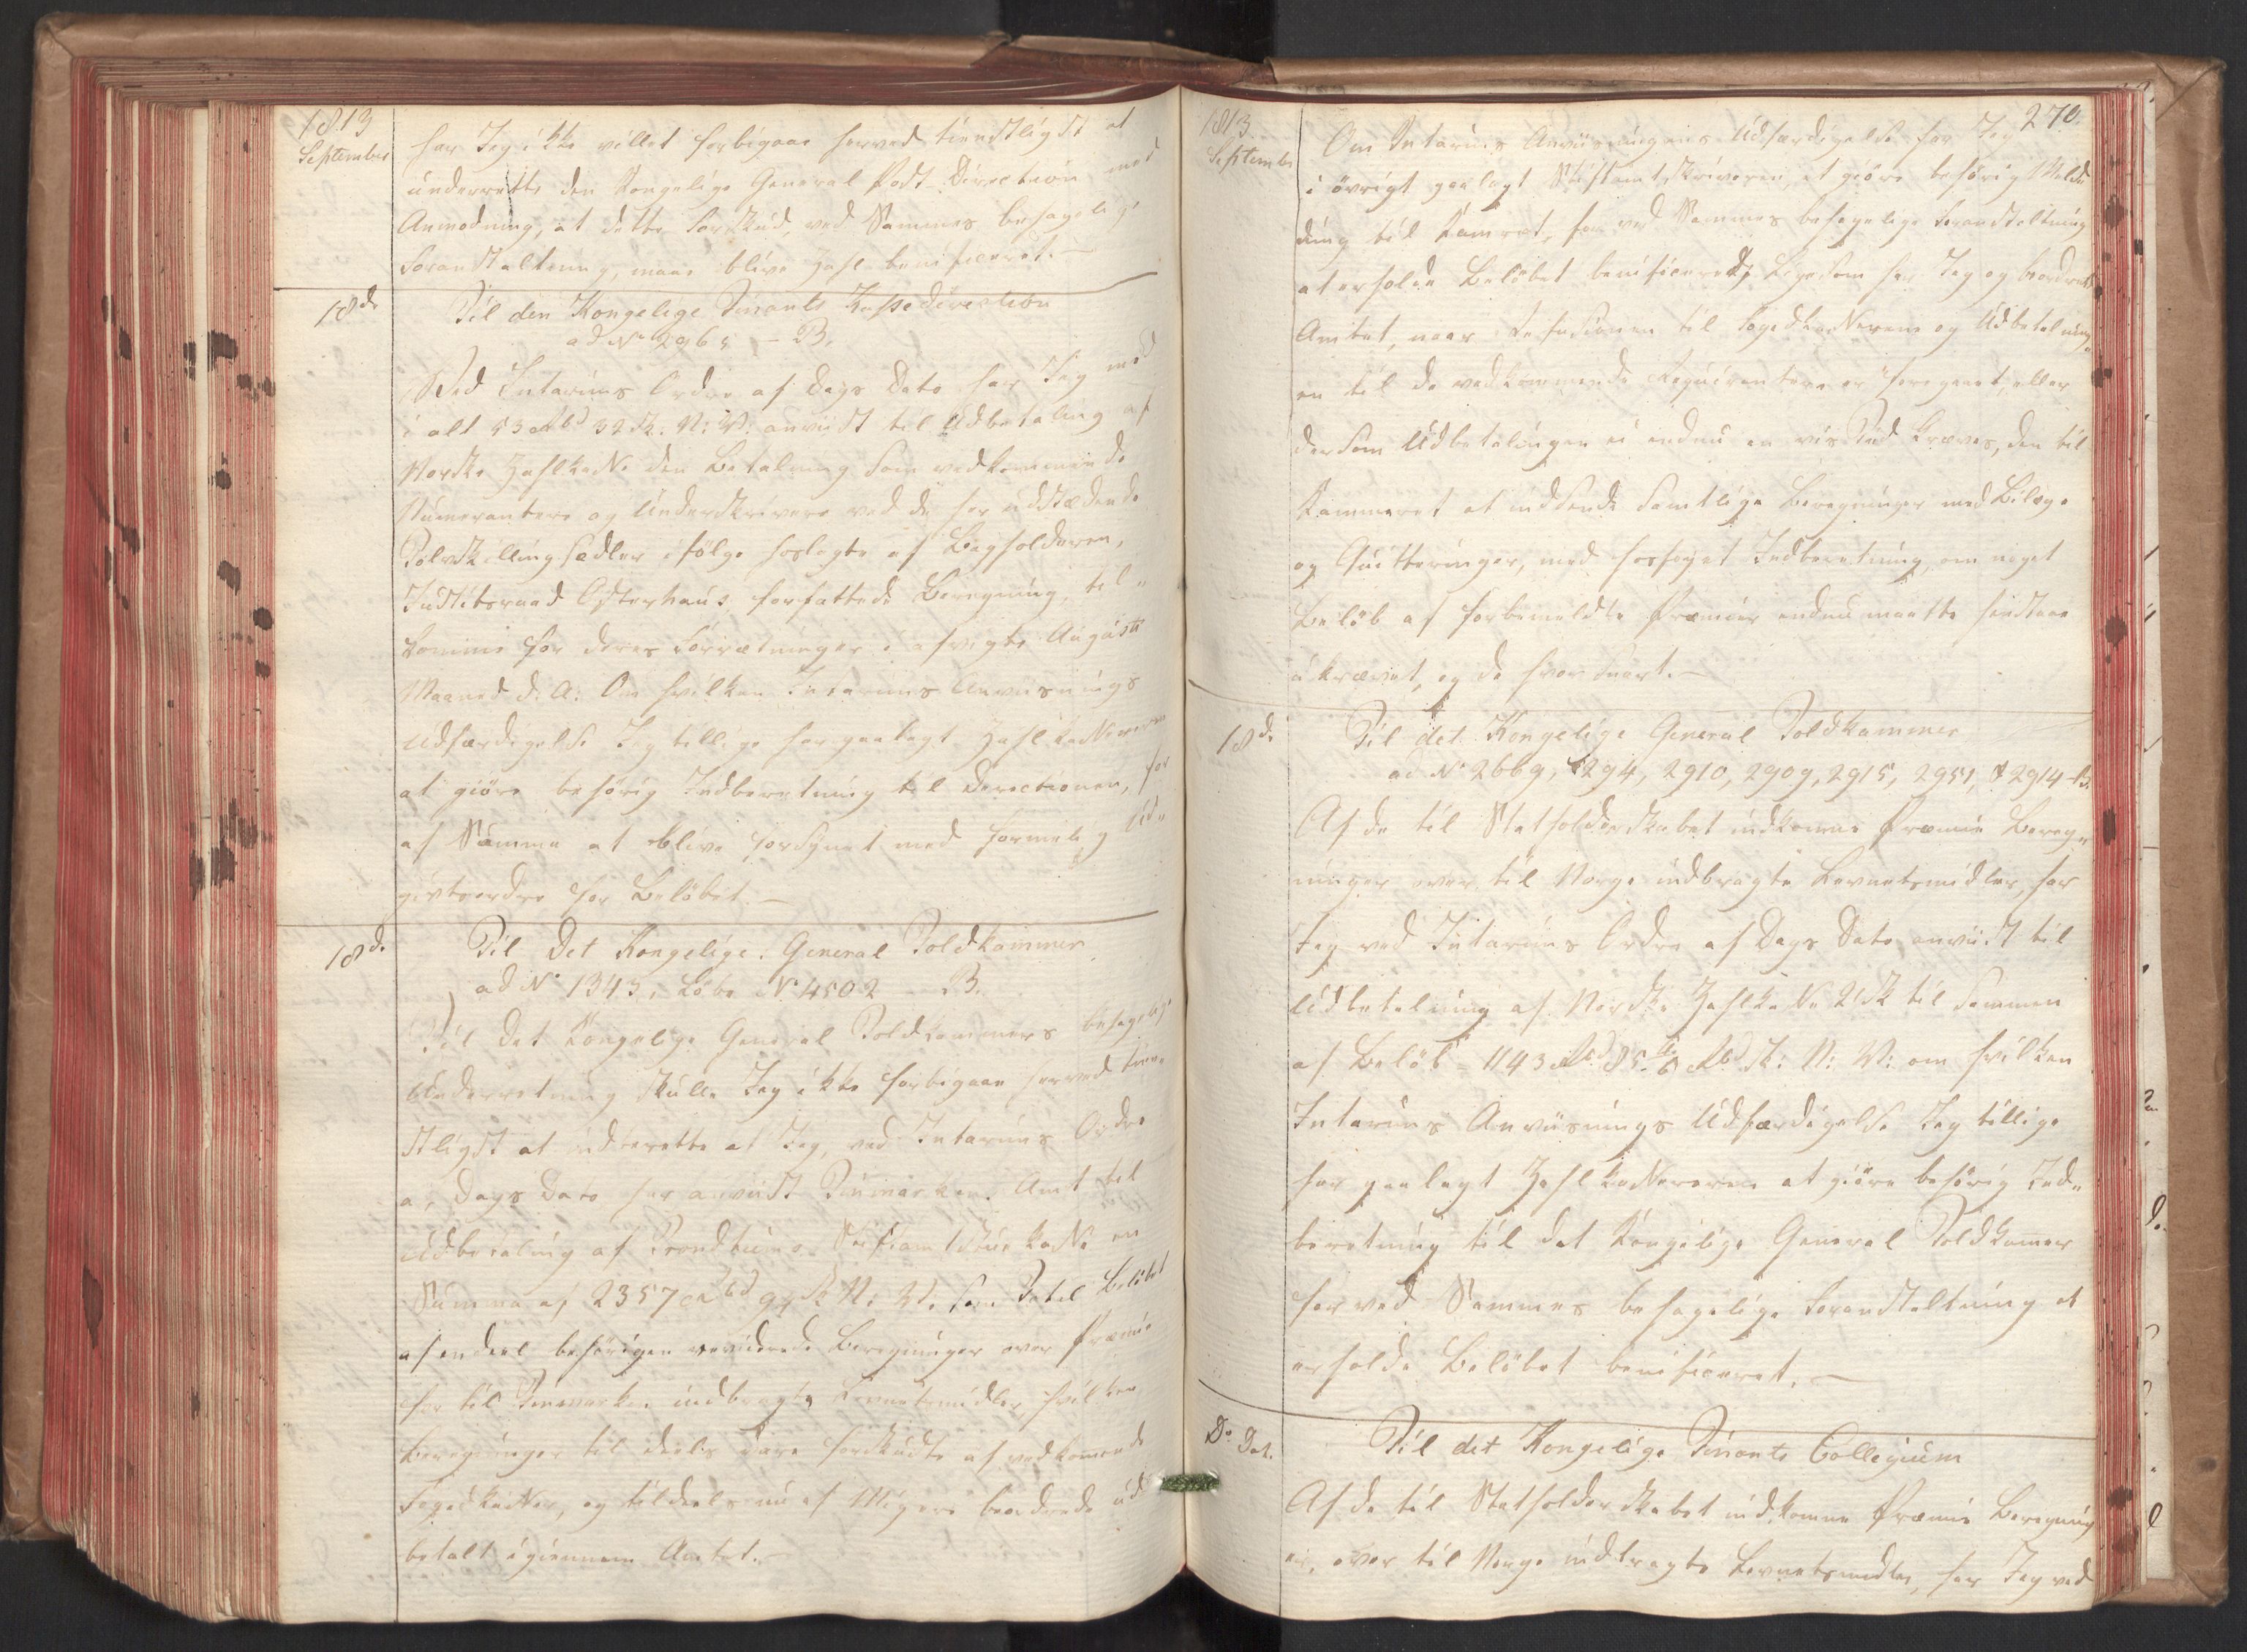 1813
September
har Jeg ikke villet forbigaae herved tienstligst at
underrette den Kongelige General Post-Direction med
Anmodning, at dette Forskud, ved Sammes behagelige
Foranstaltning, maae blive Zahlk. beneficeret.—
18d.
Til den Kongelige Finants Kassedirection
ad No 2965 – B.
Ved Interims Ordre af Dags Dato har Jeg med
i alt 53 Rbd 32 Sk. N: V: anviist til Udbetaling af
Norske Zahlkasse den Betalning som vedkommende
Numeranter og Underskrivere ved de her udstædende
Tolvskillingsedler ifölge hoslagte af Bogholderen,
Justitsraad Osterhaus forfattede Beregning, til-
komme for deres Forretninger i afvigte August
Maaned d. A. Om hvilken Interims Anviisnings
Udfærdigelse Jeg tillige har paalagt Zahlkassereren
at giöre behörig Indberetning til Directionen, for
af Samme at blive forsynet med formelig Ud-
givtsordre for Belöbet.—
18d.
Til Det Kongelige General Toldkammer
ad No 1343, Löbe No 4502 – B.
Til Det Kongelige General Toldkammers behagelige
Underretning skulle Jeg ikke forbigaae herved tiene-
stligst at indberette at Jeg, ved Interims Ordre
af Dags Dato har anviist Finmarkens Amt til
Udbetaling af Trondhiems Stiftamtstue kasse en
Summa af 2357 Rbd 94 Sk N: V: som Total Belöbet
af endeel behörigen reviderede Beregninger over Præmie
for til Finmarken indbragte Levnetsmidler, hvilken
Beregninger til deels ere forskudte af vedkomende
Fogedkasser, og tildeels nu af Migere beordrede ud
betalt igiennem Amtet.—
1813.
September
270.
Om Interims Anviisningens Udfærdigelse har Jeg
i övrigt paalagt Stiftamtskriveren, at giöre behörig Mel-
ding til Kamret, for ved Sammes behagelige Foranstaltning
at erholde Belöbet beneficeret, Ligesom har Jeg og beordret
Amtet, naar Refusionen til Fogedkasserne og Udbetalning-
en til de vedkommende Reqvirentere er foregaaet, eller
dersom Udbetalingen ei endnu en vis Tiid kræves, den til
Kammeret at indsende samtlige Beregninger med Bilage
og Qvitteringer, med hosfoyet Indberetning, om noget
Belöb af forbemeldte Præmier endnu maatte henstaae
ukrævet, og da hvor stort.—
18d.
Til det Kongelige General Toldkammer
ad No 2669, 1294, 2910, 2909, 2915, 2951, & 2914–B.
Af de til Statholderskabet indkomne Præmie Bereg-
ninger over til Norge indbragte Levnetsmidler, har
Jeg ved Interims Ordre af Dags Dato anviist til
Udbetalning af Norske Zahlkasse 21 Stk til Sammen
af Belöb = 1143 Rbd 85 Rbd Sk: N: V: om hvilken
Interims Anviisnings Udfærdigelse Jeg tillige
har paalagt Zahlkassereren at giöre behörig Ind-
beretning til det Kongelige General Toldkamer
for ved Sammes behagelige Foranstaltning at
erholde Belöbet beneficeret.—
Do Dat.
Til det Kongelige Finants Collegium
Af de til Statholderskabet indkomne Præmie Beregning
er, over til Norge indbragte Levnetsmidler, har Jeg ved